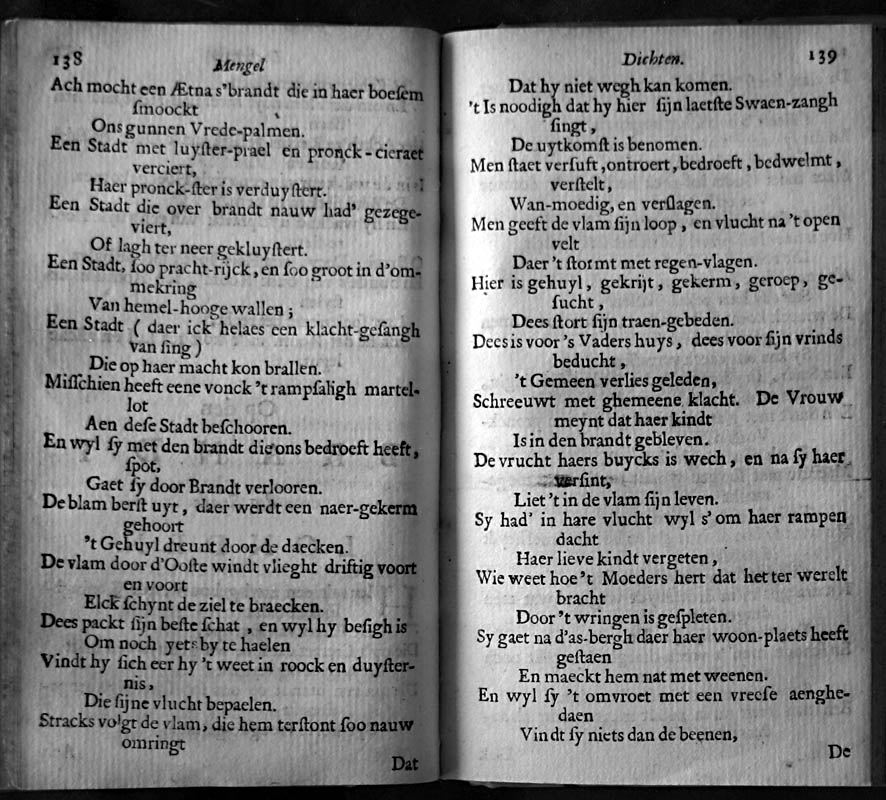 138
Mengel
Ach mocht een Ætna s'brandt die in haer boeſem
ſmoockt
Ons gunnen Vrede-palmen.
Een Stadt met luyſter-prael en pronck-cieraet
verciert,
Haer pronck-ſter is verduyſtert.
Een Stadt die over brandt nauw had' gezege-
viert,
Of lagh ter neer gekluyſtert.
Een Stadt, ſoo pracht-rijck, en ſoo groot in d'om-
mekring
Van hemel-hooge wallen;
Een Stadt ( daer ick helaes een klacht-geſangh
van ſing )
Die op haer macht kon brallen.
Miſſchien heeft eene vonck 't rampſaligh martel-
lot
Aen deſe Stadt beſchooren.
En wyl ſy met den brandt die ons bedroeft heeft,
ſpot,
Gaet ſy door Brandt verlooren.
De blam berſt uyt, daer werdt een naer-gekerm
gehoort
't Gehuyl dreunt door de daecken.
De vlam door d'Ooſte windt vlieght driftig voort
en voort
Elck ſchynt de ziel te braecken.
Dees packt ſijn beſte ſchat , en wyl hy beſigh is
Om noch yets by te haelen
Vindt hy ſich eer hy 't weet in roock en duyſter-
nis,
Die ſijne vlucht bepaelen.
Stracks volgt de vlam, die hem terſtont ſoo nauw
omringt
Dat
Dichten.
139
Dat hy niet wegh kan komen.
't Is noodigh dat hy hier ſijn laetſte Swaen-zangh
ſingt,
De uytkomſt is benomen.
Men ſtaet verſuft, ontroert, bedroeft, bedwelmt,
verſtelt,
Wan-moedig, en verſlagen.
Men geeft de vlam ſijn loop, en vlucht na 't open
velt
Daer 't ſtormt met regen-vlagen.
Hier is gehuyl, gekrijt, gekerm, geroep, ge-
ſucht,
Dees ſtort ſijn traen-gebeden.
Dees is voor 's Vaders huys, dees voor ſijn vrinds
beducht,
't Gemeen verlies geleden,
Schreeuwt met ghemeene klacht. De Vrouw
meynt dat haer kindt
Is in den brandt gebleven.
De vrucht haers buycks is wech, en na ſy haer
verſint,
Liet 't in de vlam ſijn leven.
Sy had' in hare vlucht wyl s' om haer rampen
dacht
Haer lieve kindt vergeten,
Wie weet hoe 't Moeders hert dat het ter werelt
bracht
Door 't wringen is geſpleten.
Sy gaet na d'as-bergh daer haer woon-plaets heeft
geſtaen
En maeckt hem nat met weenen.
En wyl ſy 't omvroet met een vreeſe aenghe-
daen
Vindt ſy niets dan de beenen,
De